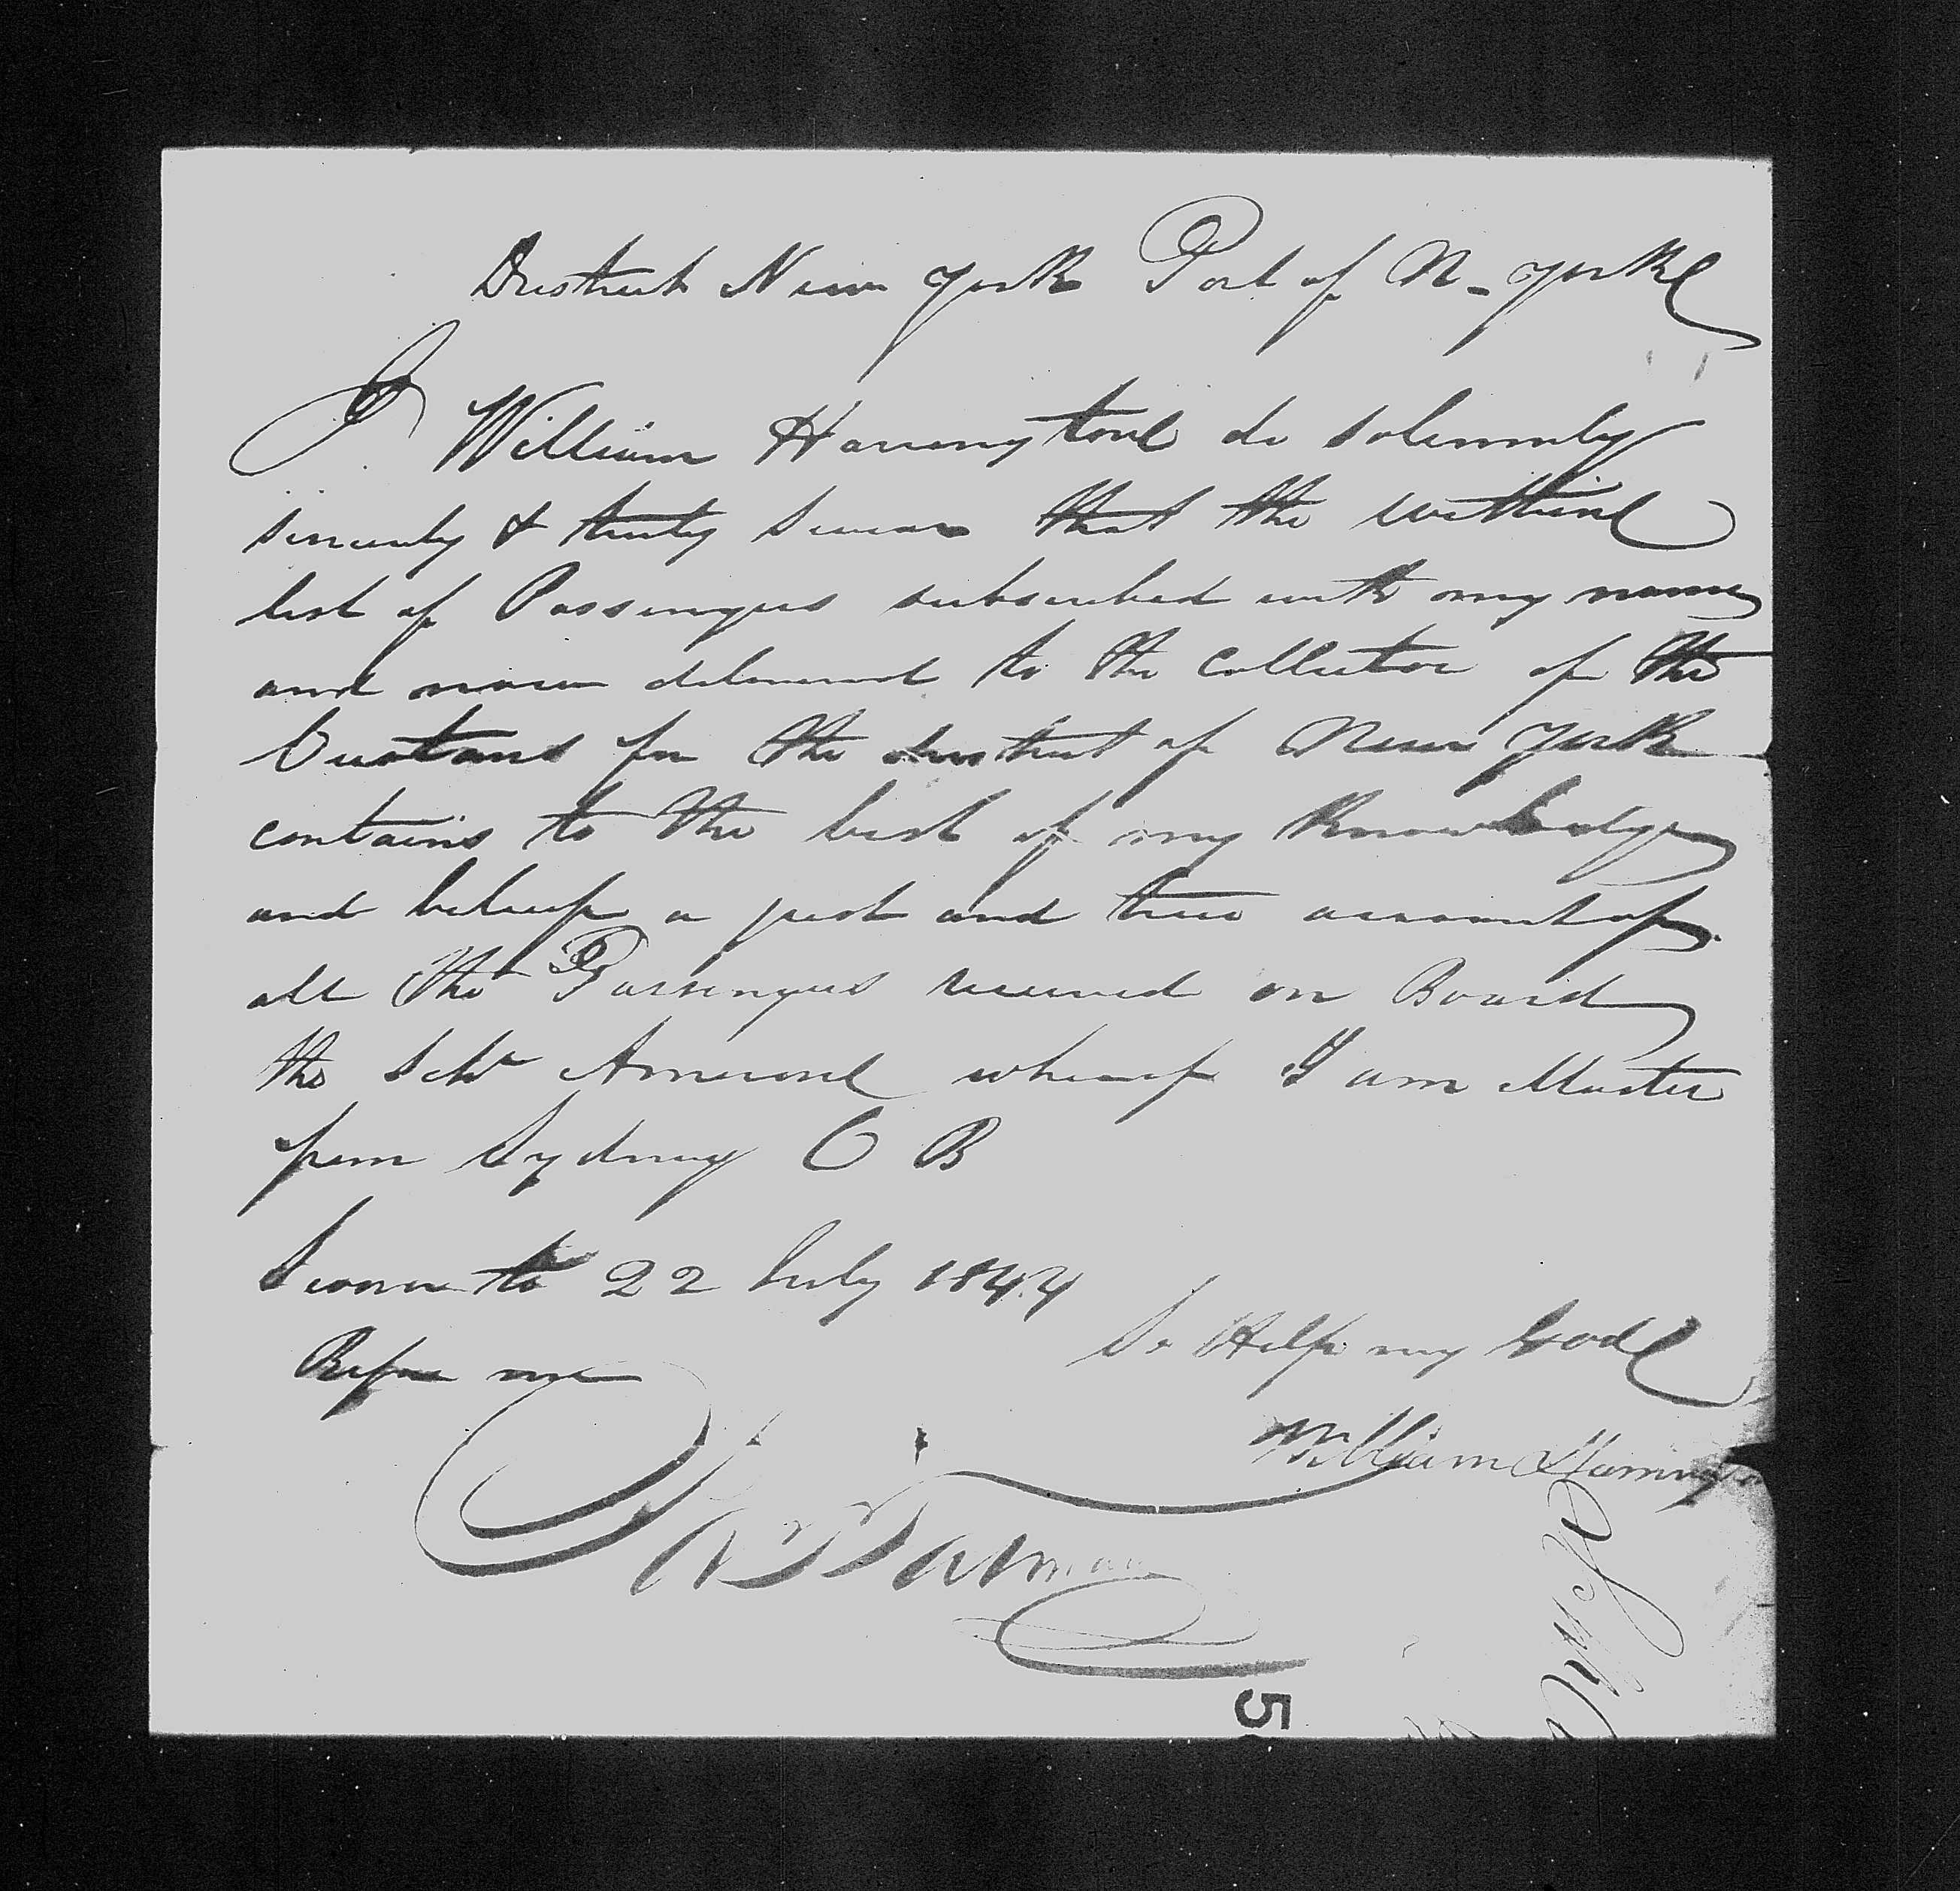 District New York Port of N - York
I William Harrington do solemnly
sincerely & truly swear that the within
list of Passengers subscribed with my name
and now delivered to the Collector of the
Customs for the district of New York
contains to the best of my Knowledge
and belief a just and true account of
all the Passengers received on Board
the Schr whereof I am Master
from Sydney C B
Sworn to 22 July 1844
So Help my God
Before me
William Harrington
5